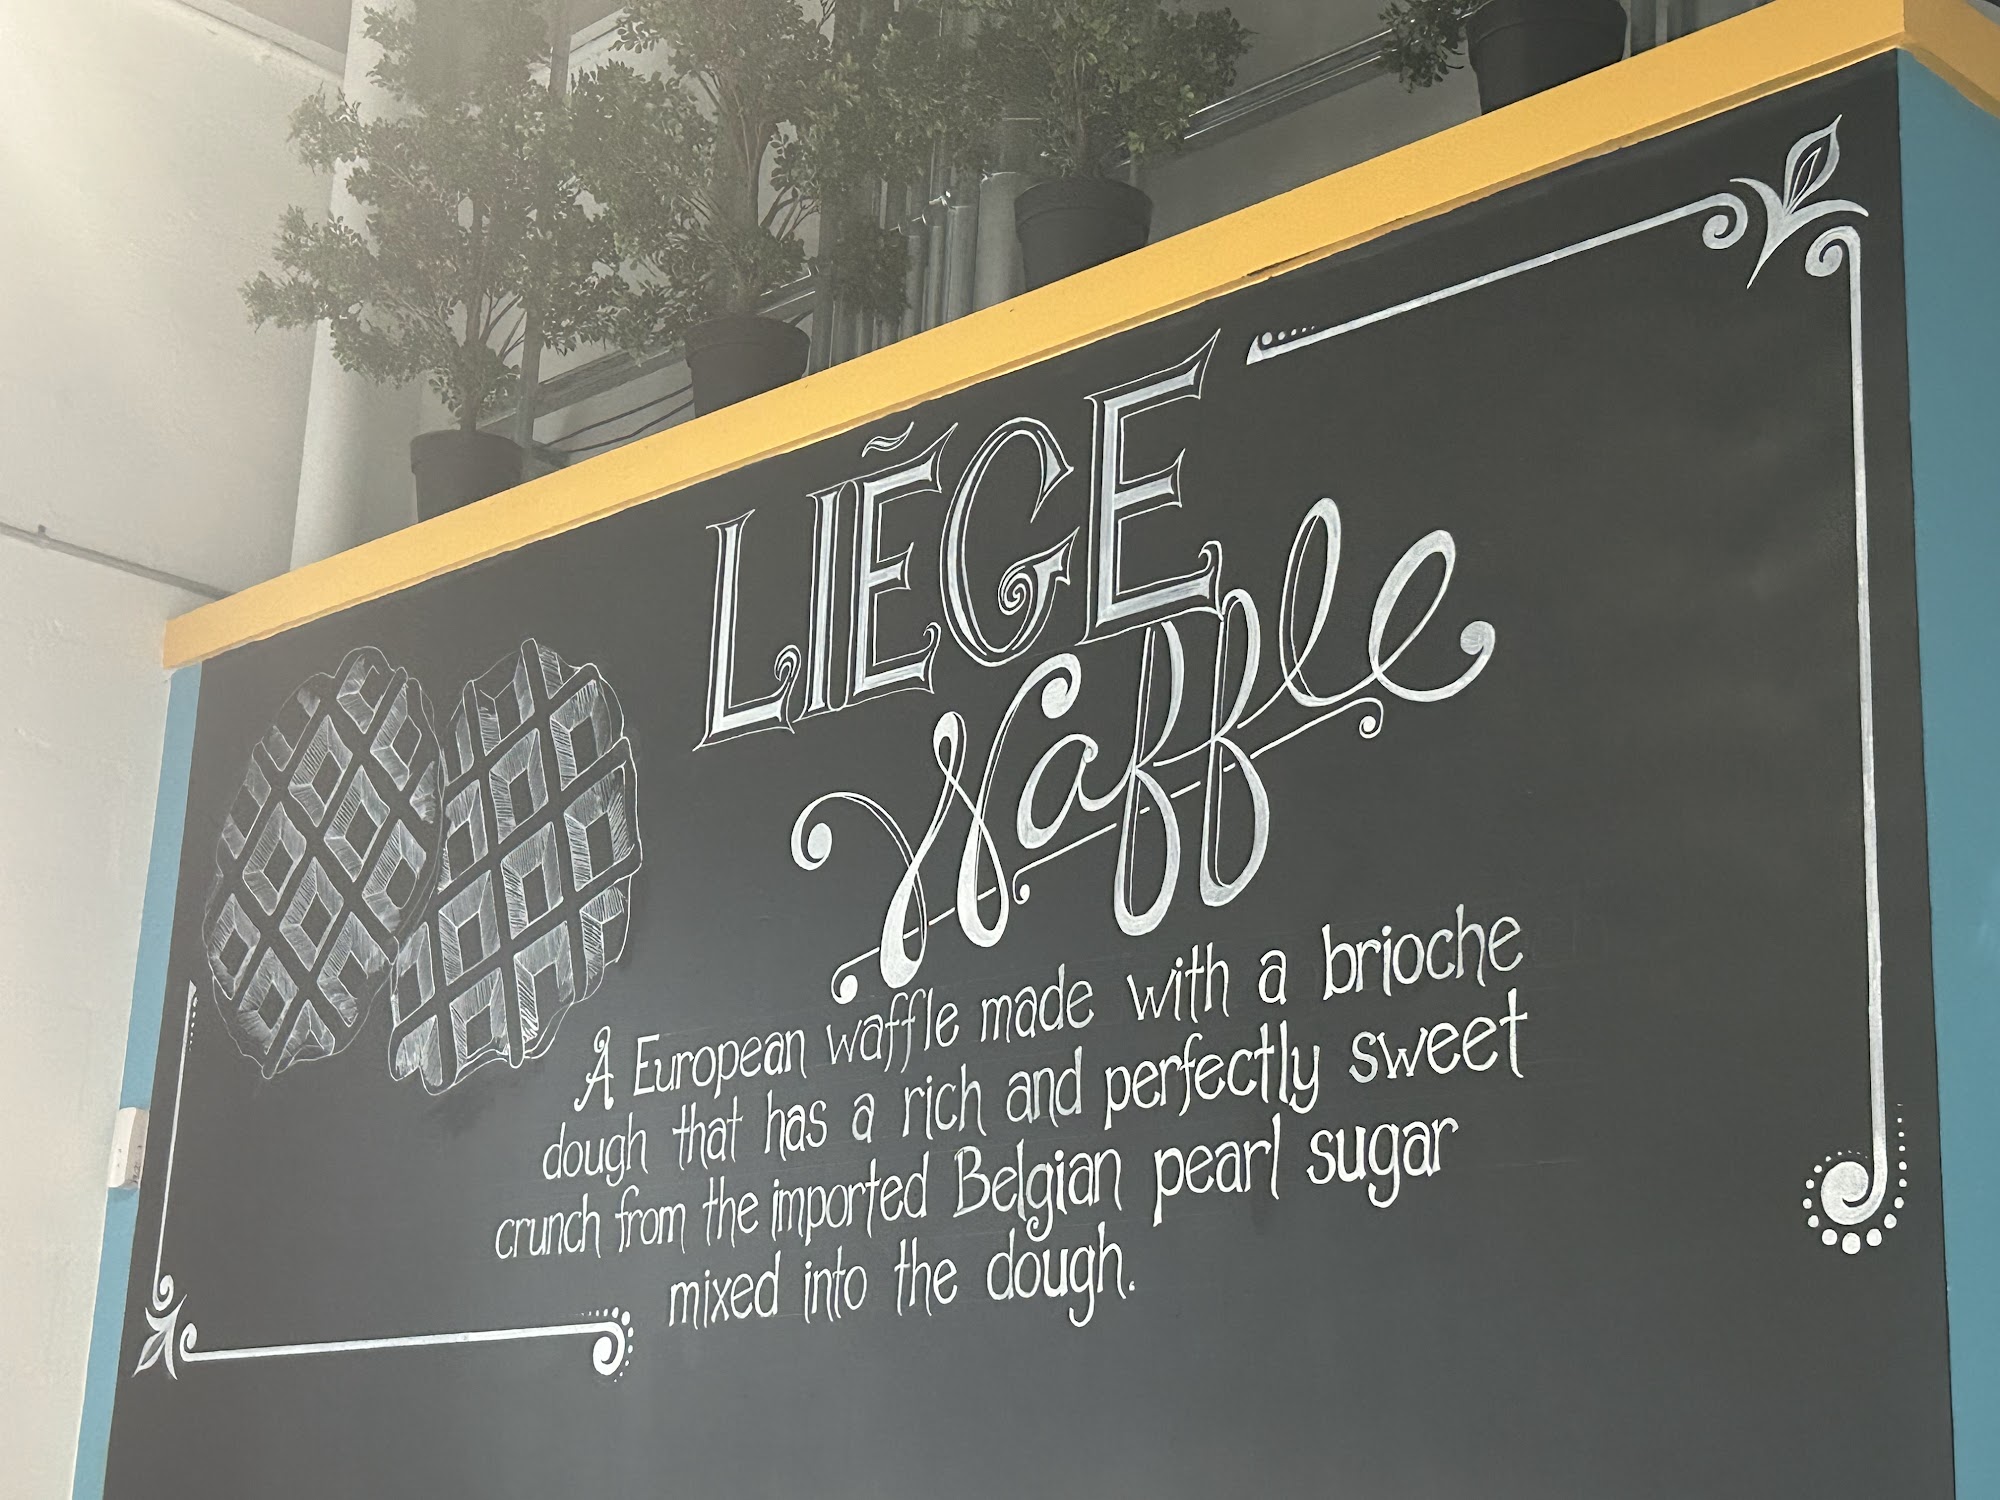 LIÉGE
Waffle
A European waffle made with a brioche
dough that has a rich and perfectly sweet
crunch from the imported Belgian pearl sugar
mixed into the dough.